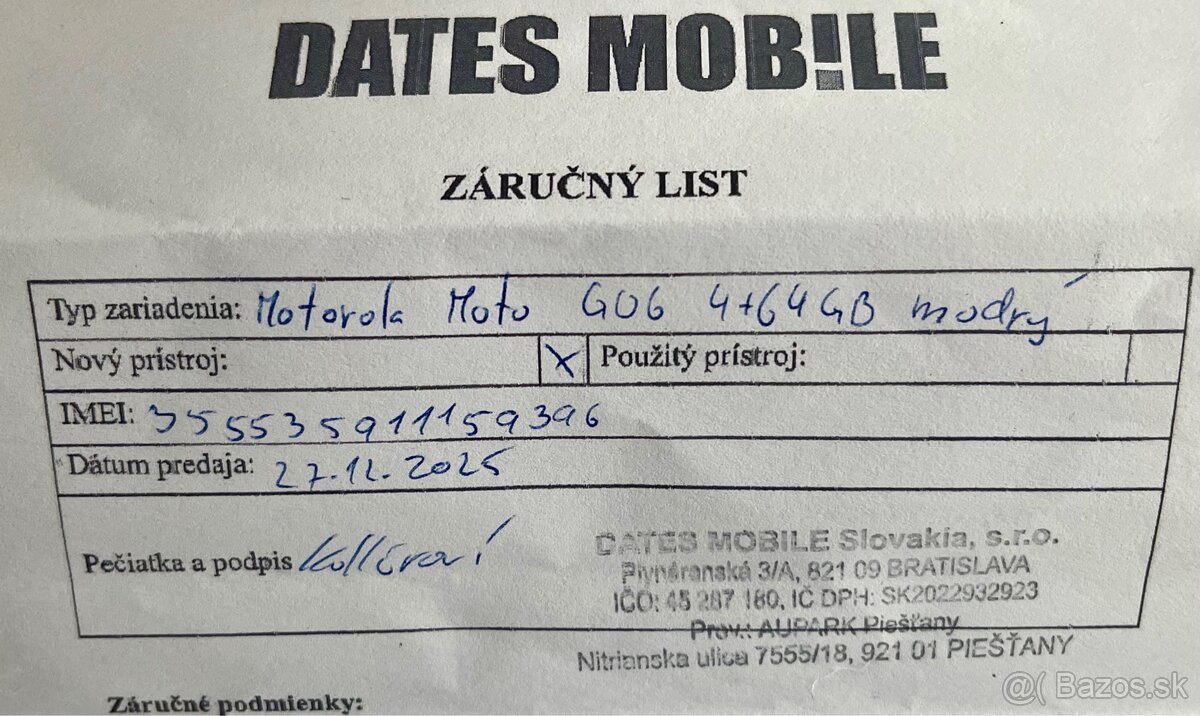 DATES MOB!LE
ZÁRUČNÝ LIST
Typ zariadenia: Motorola Moto G06 4+64GB modrý
Nový prístroj: X Použitý prístroj:
IMEI: 355535911159396
Dátum predaja: 27.12.2025
Pečiatka a podpis
DATES MOBILE Slovakia, s.r.o.
Plynárenská 3/A, 821 09 BRATISLAVA
IČO: 45 287 180, IČ DPH: SK2022932923
Prev.: AUPARK Piešťany
Nitrianska ulica 7555/18, 921 01 PIEŠŤANY
Záručné podmienky:
@( Bazos.sk